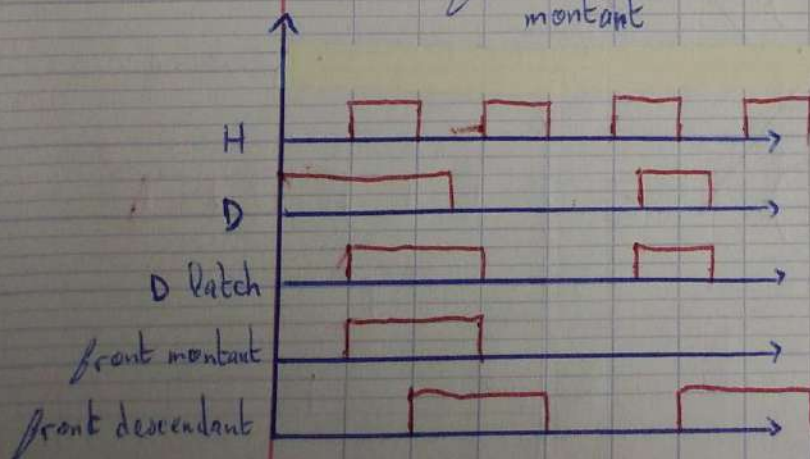 montant
H
D
D latch
front montant
front descendant